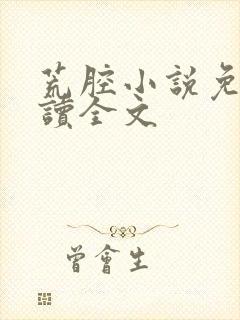 荒腔小說免
讀全文
曾會生